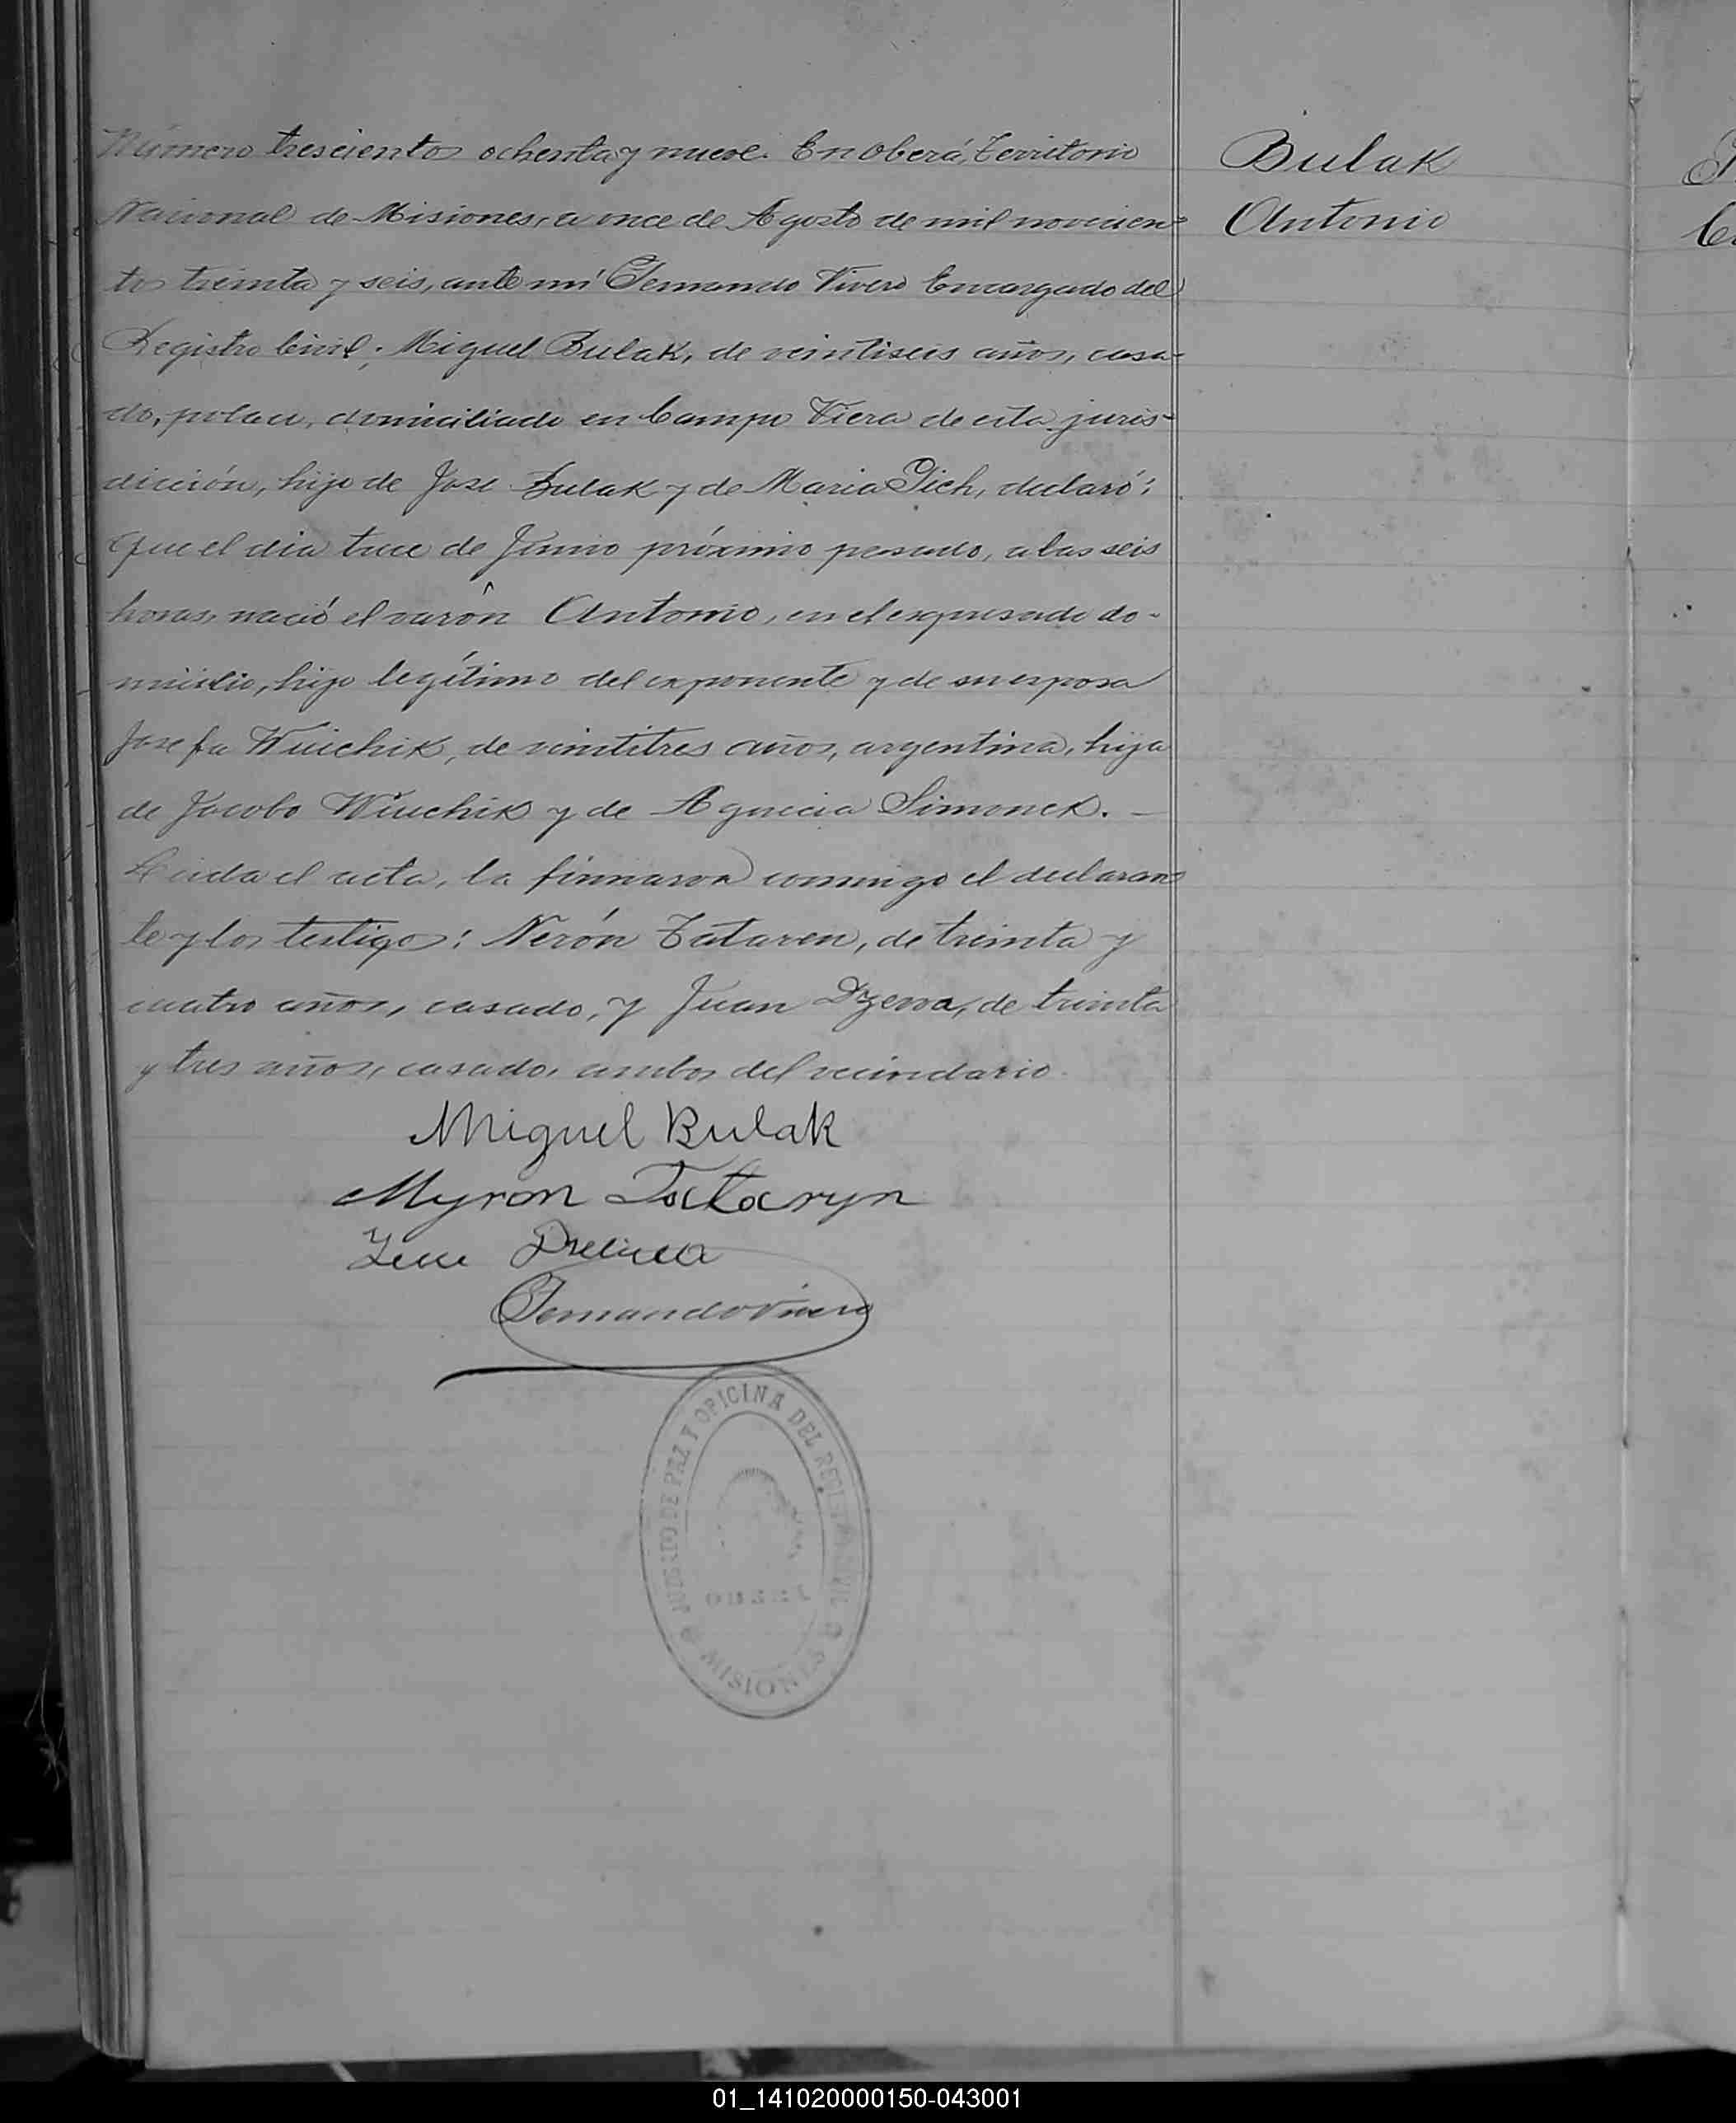 Número trescientos ochenta y nueve. En Oberá, Territorio
Nacional de Misiones, a once de Agosto de mil novecien-
tos treinta y seis, ante mí Fernando Vivero Encargado del
Registro Civil; Miguel Bulak, de veintiseis años, casa-
do, polaco, domiciliado en Campo Viera de esta juris-
dicción, hijo de José Bulak y de Maria Pich, declaró:
Que el dia trece de Junio próximo pasado, a las seis
horas, nació el varón Antonio, en el expresado do-
micilio, hijo legítimo del exponente y de su esposa
Josefa Wuichik, de veintitres años, argentina, hija
de Jacobo Wuichik y de Agnecia Simonek. —
Leida el acta, la firmaron conmigo el declaran-
te y los testigos: Nerón Tataren, de treinta y
cuatro años, casado, y Juan Dzewa, de treinta
y tres años, casado, ambos del vecindario.
Miguel Bulak
Myron Tataryn
Fernando Vivero
JUZGADO DE PAZ Y OFICINA DEL REGISTRO CIVIL
OBERÁ
MISIONES
Bulak
Antonio
01_141020000150-043001